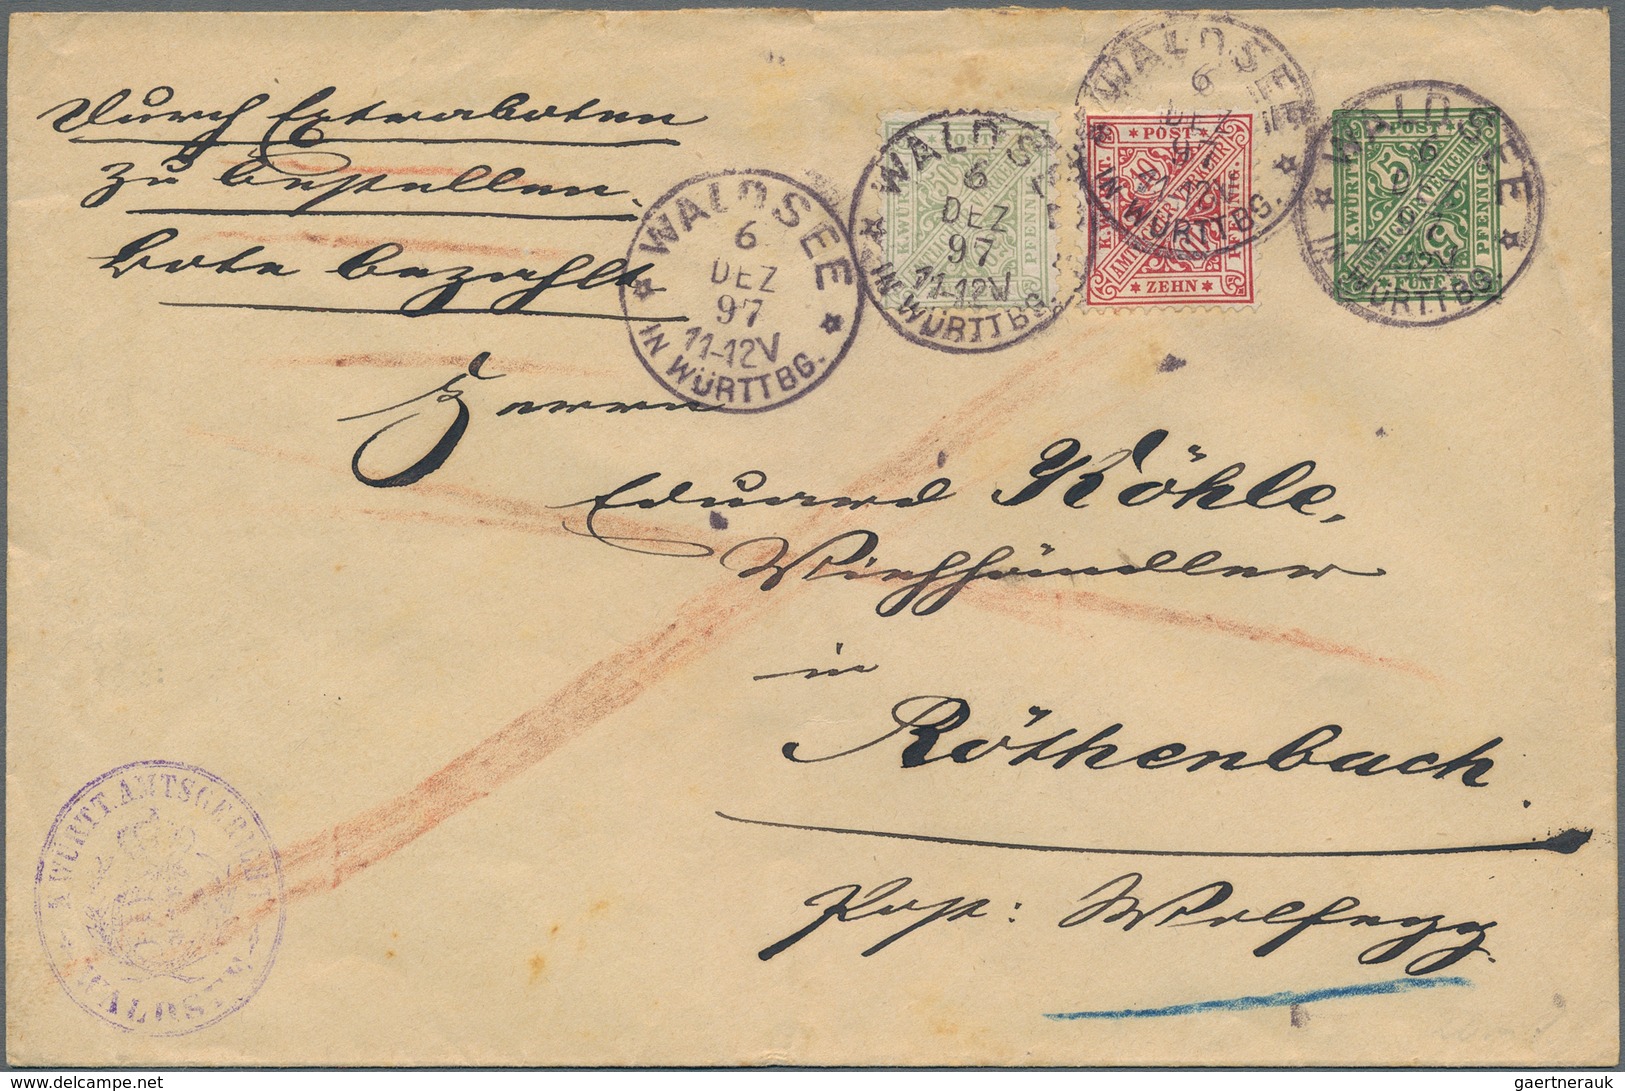 Durch Extraboten
zu bestellen.
Bote bezahlt.
WALDSEE
6
DEZ
97
11-12V
IN WÜRTTBG.
WALDSEE
6
DEZ
97
11-12V
IN WÜRTTBG.
POST
K.WÜRTT.
PFENNIG
50
WALDSEE
6
DEZ
97
IN WÜRTTBG.
POST
K.WÜRTT.
AMTLICHER VERKEHR
10
PFENNIG.
ZEHN
WALDSEE
6
DEZ
97
IN WÜRTTBG.
POST
K.WÜRTT.
AMTLICHER VERKEHR
5
PFENNIG
FÜNF
Herrn
Eduard Köhle,
Viehhändler
in
Röthenbach.
Post: Wolfegg.
K. WÜRTT. AMTSGERICHT
WALDSEE
delcampe.net
gaertnerauk